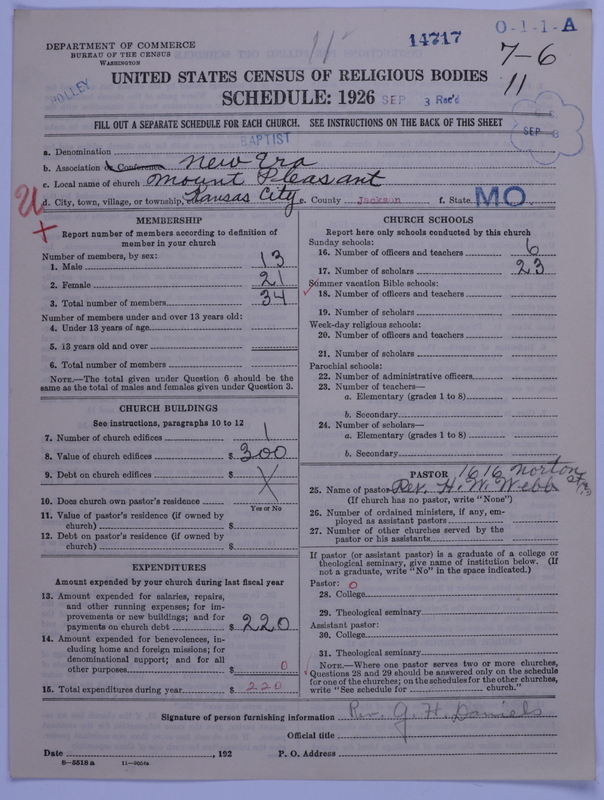 DEPARTMENT OF COMMERCE
BUREAU OF THE CENSUS
WASHINGTON
14717
0-1-1-A
7-6
11
11
POLLEY
UNITED STATES CENSUS OF RELIGIOUS BODIES
SCHEDULE: 1926 SEP 3 Rec'd
FILL OUT A SEPARATE SCHEDULE FOR EACH CHURCH. SEE INSTRUCTIONS ON THE BACK OF THIS SHEET
SEP
BAPTIST
a. Denomination
b. Association or Conference New Era
c. Local name of church Mount Pleasant
d. City, town, village, or township, Kansas City e. County Jackson f. State MO.
MEMBERSHIP
Report number of members according to definition of
member in your church
Number of members, by sex:
1. Male 13
2. Female 21
3. Total number of members 34
Number of members under and over 13 years old:
4. Under 13 years of age
5. 13 years old and over
6. Total number of members
NOTE.—The total given under Question 6 should be the
same as the total of males and females given under Question 3.
CHURCH BUILDINGS
See instructions, paragraphs 10 to 12
7. Number of church edifices 1
8. Value of church edifices $300
9. Debt on church edifices $ X
10. Does church own pastor's residence
Yes or No
11. Value of pastor's residence (if owned by
church) $
12. Debt on pastor's residence (if owned by
church) $
EXPENDITURES
Amount expended by your church during last fiscal year
13. Amount expended for salaries, repairs,
and other running expenses; for im-
provements or new buildings; and for
payments on church debt $220
14. Amount expended for benevolences, in-
cluding home and foreign missions; for
denominational support; and for all
other purposes $ 0
15. Total expenditures during year $ 220
CHURCH SCHOOLS
Report here only schools conducted by this church
Sunday schools:
16. Number of officers and teachers 6
17. Number of scholars 23
Summer vacation Bible schools:
18. Number of officers and teachers
19. Number of scholars
Week-day religious schools:
20. Number of officers and teachers
21. Number of scholars
Parochial schools:
22. Number of administrative officers
23. Number of teachers—
a. Elementary (grades 1 to 8)
b. Secondary
24. Number of scholars—
a. Elementary (grades 1 to 8)
b. Secondary
PASTOR 1616 Norton
25. Name of pastor Rev. H. W. Webb
(If church has no pastor, write "None")
26. Number of ordained ministers, if any, em-
ployed as assistant pastors
27. Number of other churches served by the
pastor or his assistants
If pastor (or assistant pastor) is a graduate of a college or
theological seminary, give name of institution below. (If
not a graduate, write "No" in the space indicated.)
Pastor: 0
28. College
29. Theological seminary
Assistant pastor:
30. College
31. Theological seminary
NOTE.—Where one pastor serves two or more churches,
Questions 28 and 29 should be answered only on the schedule
for one of the churches; on the schedules for the other churches,
write "See schedule for church."
Signature of person furnishing information Rev. G. H. Daniels
Official title
Date , 192 P. O. Address
8-5518 a